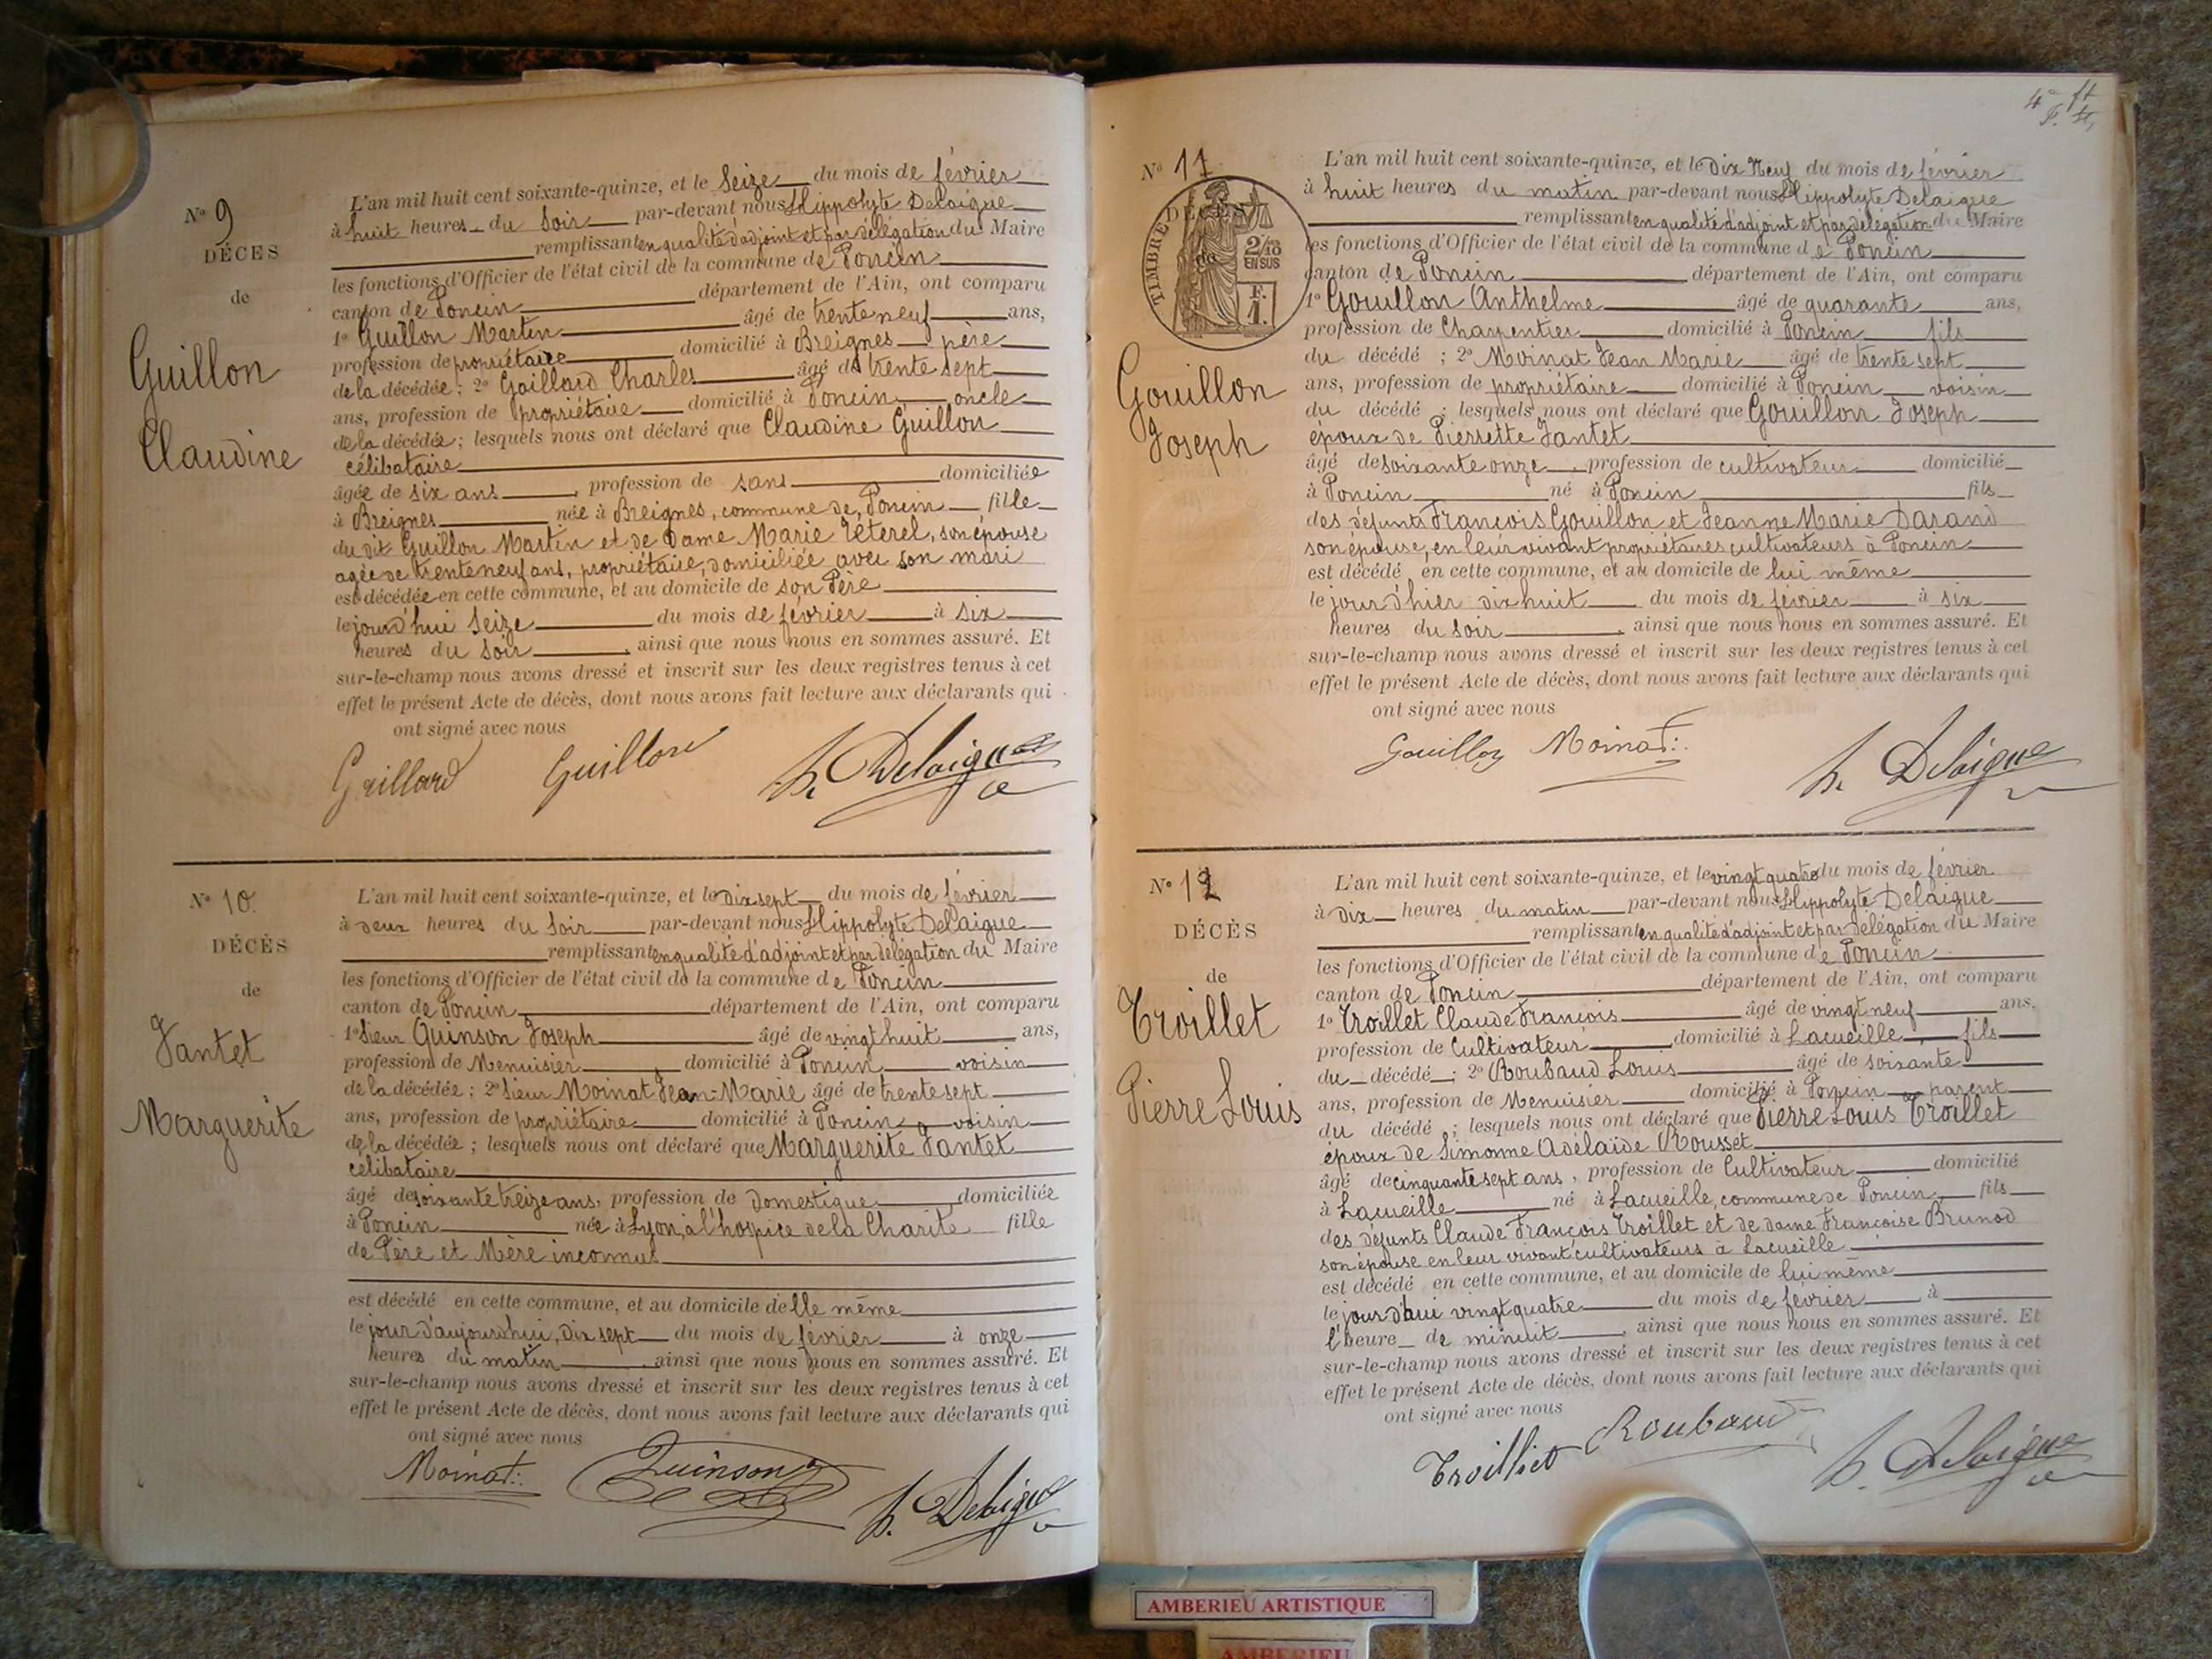 N° 9
DÉCES
de
Guillon
Claudine
L'an mil huit cent soixante-quinze, et le Seize du mois de février
à huit heures du Soir par-devant nous Hippolyte Delaigue
remplissant en qualité d'adjoint et par délégation du Maire
les fonctions d'Officier de l'état civil de la commune de Poncin
canton de Poncin département de l'Ain, ont comparu
1° Guillon Martin âgé de trente neuf ans,
profession de propriétaire domicilié à Breignes père
de la décédée ; 2° Gaillard Charles âgé de trente sept
ans, profession de propriétaire domicilié à Poncin oncle
de la décédée ; lesquels nous ont déclaré que Claudine Guillon
célibataire
âgée de six ans, profession de sans domiciliée
à Breignes née à Breignes, commune de Poncin fille
du dit Guillon Martin et de Dame Marie Téterel, son épouse
agée de trente neuf ans, propriétaire, domiciliée avec son mari
est décédée en cette commune, et au domicile de son Père
le jourd'hui Seize du mois de février à six
heures du Soir, ainsi que nous nous en sommes assuré. Et
sur-le-champ nous avons dressé et inscrit sur les deux registres tenus à cet
effet le présent Acte de décès, dont nous avons fait lecture aux déclarants qui
ont signé avec nous
Gaillard Guillon h. Delaigue
N° 10.
DÉCÈS
de
Jantet
Marguerite
L'an mil huit cent soixante-quinze, et le Dix sept du mois de février
à deux heures du Soir par-devant nous Hippolyte Delaigue
remplissant en qualité d'adjoint et par délégation du Maire
les fonctions d'Officier de l'état civil de la commune de Poncin
canton de Poncin département de l'Ain, ont comparu
1° Sieur Quinson Joseph âgé de vingt huit ans,
profession de Menuisier domicilié à Poncin voisin
de la décédée ; 2° Sieur Moinat Jean-Marie âgé de trente sept
ans, profession de propriétaire domicilié à Poncin voisin
de la décédée ; lesquels nous ont déclaré que Marguerite Jantet
célibataire
âgé de soixante treize ans, profession de Domestique domiciliée
à Poncin née à Lyon, à l'hospice de la Charité fille
de Père et Mère inconnus
est décédé en cette commune, et au domicile delle même
le jour d'aujourd'hui, Dix sept du mois de février à onze
heures du matin, ainsi que nous nous en sommes assuré. Et
sur-le-champ nous avons dressé et inscrit sur les deux registres tenus à cet
effet le présent Acte de décès, dont nous avons fait lecture aux déclarants qui
ont signé avec nous
Moinat Quinson h. Delaigue
N° 11
TIMBRE
2/10
EN SUS
F.
1.
Gouillon
Joseph
L'an mil huit cent soixante-quinze, et le Dix Neuf du mois de février
à huit heures du matin par-devant nous Hippolyte Delaigue
remplissant en qualité d'adjoint et par délégation du Maire
les fonctions d'Officier de l'état civil de la commune de Poncin
canton de Poncin département de l'Ain, ont comparu
1° Gouillon Anthelme âgé de quarante ans,
profession de Charpentier domicilié à Poncin fils
du décédé ; 2° Moinat Jean Marie âgé de trente sept
ans, profession de propriétaire domicilié à Poncin voisin
du décédé ; lesquels nous ont déclaré que Gouillon Joseph
époux de Pierrette Jantet
âgé de soixante onze, profession de cultivateur domicilié
à Poncin né à Poncin fils
des défunts François Gouillon et Jeanne Marie Darand
son épouse, en leur vivant propriétaires cultivateurs à Poncin
est décédé en cette commune, et au domicile de lui même
le jour d'hier dix huit du mois de février à six
heures du Soir, ainsi que nous nous en sommes assuré. Et
sur-le-champ nous avons dressé et inscrit sur les deux registres tenus à cet
effet le présent Acte de décès, dont nous avons fait lecture aux déclarants qui
ont signé avec nous
Gouillon Moinat h. Delaigue
N° 12
DÉCÈS
de
Troillet
Pierre Louis
L'an mil huit cent soixante-quinze, et le vingt quatre du mois de février
à Dix heures du matin par-devant nous Hippolyte Delaigue
remplissant en qualité d'adjoint et par délégation du Maire
les fonctions d'Officier de l'état civil de la commune de Poncin
canton de Poncin département de l'Ain, ont comparu
1° Troillet Claude François âgé de vingt neuf ans,
profession de Cultivateur domicilié à Lacueille, fils
du décédé ; 2° Roubaud Louis âgé de soixante
ans, profession de Menuisier domicilié à Poncin parent
du décédé ; lesquels nous ont déclaré que Pierre Louis Troillet
époux de Simonne Adélaïde Rousset
âgé de cinquante sept ans, profession de Cultivateur domicilié
à Lacueille né à Lacueille, commune de Poncin, fils
des défunts Claude François Troillet et de dame Françoise Brunod
son épouse en leur vivant cultivateurs à Lacueille
est décédé en cette commune, et au domicile de lui même
le jour d'hui vingt quatre du mois de février à
l'heure de minuit, ainsi que nous nous en sommes assuré. Et
sur-le-champ nous avons dressé et inscrit sur les deux registres tenus à cet
effet le présent Acte de décès, dont nous avons fait lecture aux déclarants qui
ont signé avec nous
Troilliet Roubaud h. Delaigue
AMBERIEU ARTISTIQUE
AMBERIEU